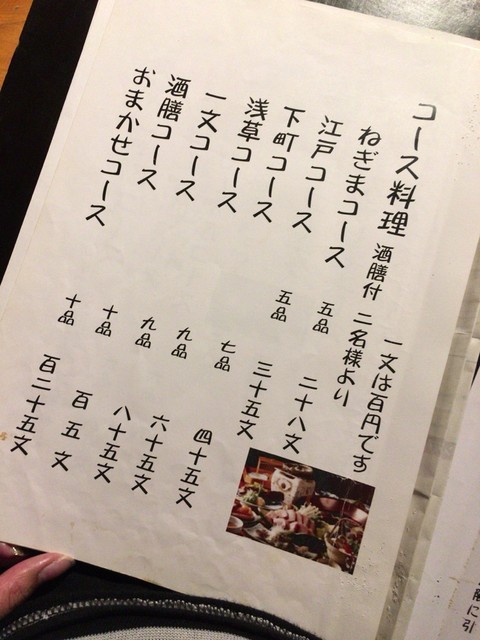 コース料理 酒膳付 二名様より
一文は百円です
ねぎまコース 五品 二十八文
江戸コース 五品 三十五文
下町コース 七品 四十五文
浅草コース 九品 六十五文
一文コース 九品 八十五文
酒膳コース 十品 百五文
おまかせコース 十品 百二十五文